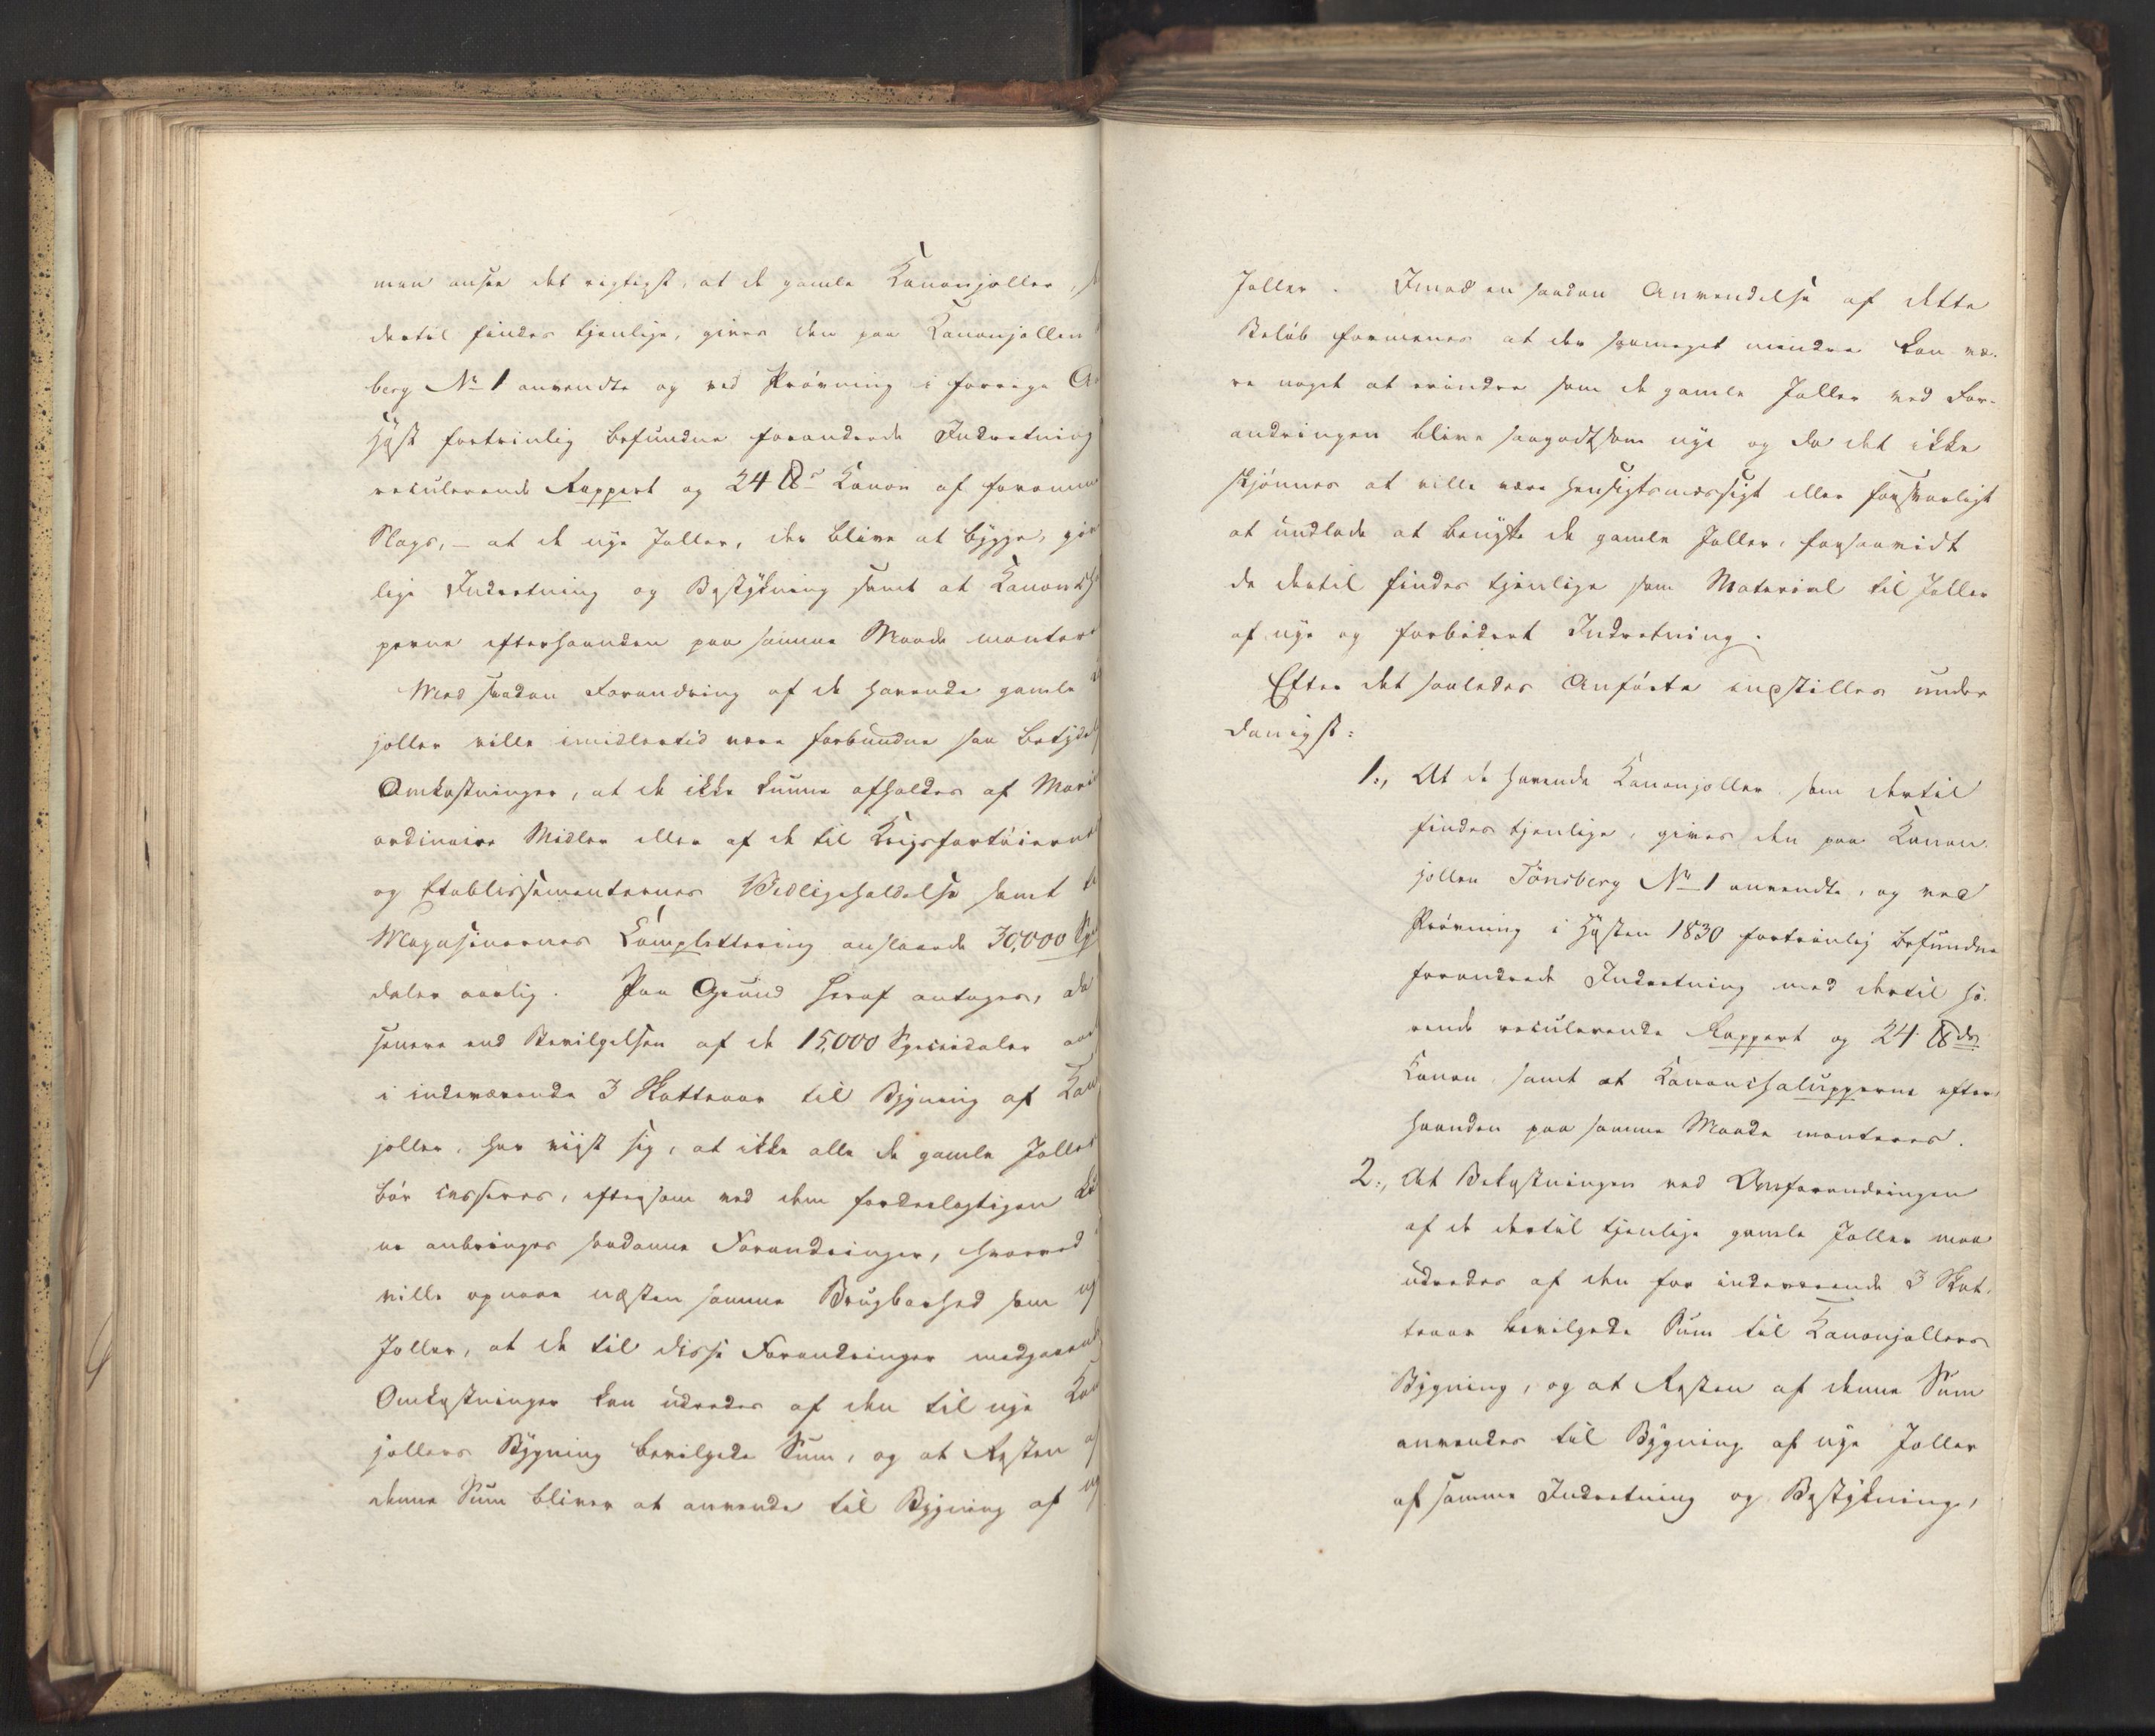 man anseer det rigtigst, at de gamle Kanonjoller, s
dertil findes tjenlige, gives den paa Kanonjollen
berg No 1 anvendte og ved Prövning i forrige A
Höst fortrinlig befundne forandrede Indretning
reculerende Rappert og 24 ℔s Kanon af forom
Slags, – at de nye Joller, der blive at bygge, giv
lige Indretning og Bestykning samt at Kanonch
perne efterhaanden paa samme Maade monter
Med saadan Forandring af de havende gamle
joller ville imidlertid være forbundne saa betyde
Omkostninger, at de ikke kunne afholdes af Mari
ordinaire Midler eller af de til Krigsfartöierne
og Etablissementernes Vedligeholdelse samt t
Magasinernes Complettering anslaaede 30,000 Spe
daler aarlig. Paa Grund heraf antages, da
senere end Bevilgelsen af de 15,000 Speciedaler aar
i indeværende 3 Skatteaar til Bygning af Kan
joller, har viist sig, at ikke alle de gamle Joller
bör casseres, eftersom ved dem fordeelagtigen k
ne anbringes saadanne Forandringer, hvorved
ville opnaae næsten samme Brugbarhed som ny
Joller, at de til disse Forandringer medgaaend
Omkostninger kan udredes af den til nye Kan
jollers Bygning bevilgede Sum, og at Resten af
denne Sum bliver at anvende til Bygning af ny
Joller. Imod en saadan Anvendelse af dette
Belöb formenes at der saameget mindre kan væ-
re noget at erindre som de gamle Joller ved For-
andringen blive saagodtsom nye og da det ikke
skjönnes at ville være hensigtsmæssigt eller forsvarligt
at undlade at benytte de gamle Joller, forsaavidt
de dertil findes tjenlige som Material til Joller
af nye og forbedret Indretning.
Efter det saaledes Anförte indstilles under
danigst:
1., At de havende Kanonjoller, som dertil
findes tjenlige, gives den paa Kanon
jollen Tönsberg No 1 anvendte, og ved
Prövning i Hösten 1830 fortrinlig befundne
forandrede Indretning med dertil hö-
rende reculerende Rappert og 24 ℔ds
Kanon, samt at Kanonchalupperne efter-
haanden paa samme Maade monteres.
2., At Bekostningen ved Omforandringen
af de dertil tjenlige gamle Joller maa
udredes af den for indeværende 3 Skat-
teaar bevilgede Sum til Kanonjollers
Bygning, og at Resten af denne Sum
anvendes til Bygning af nye Joller
af samme Indretning og Bestykning,